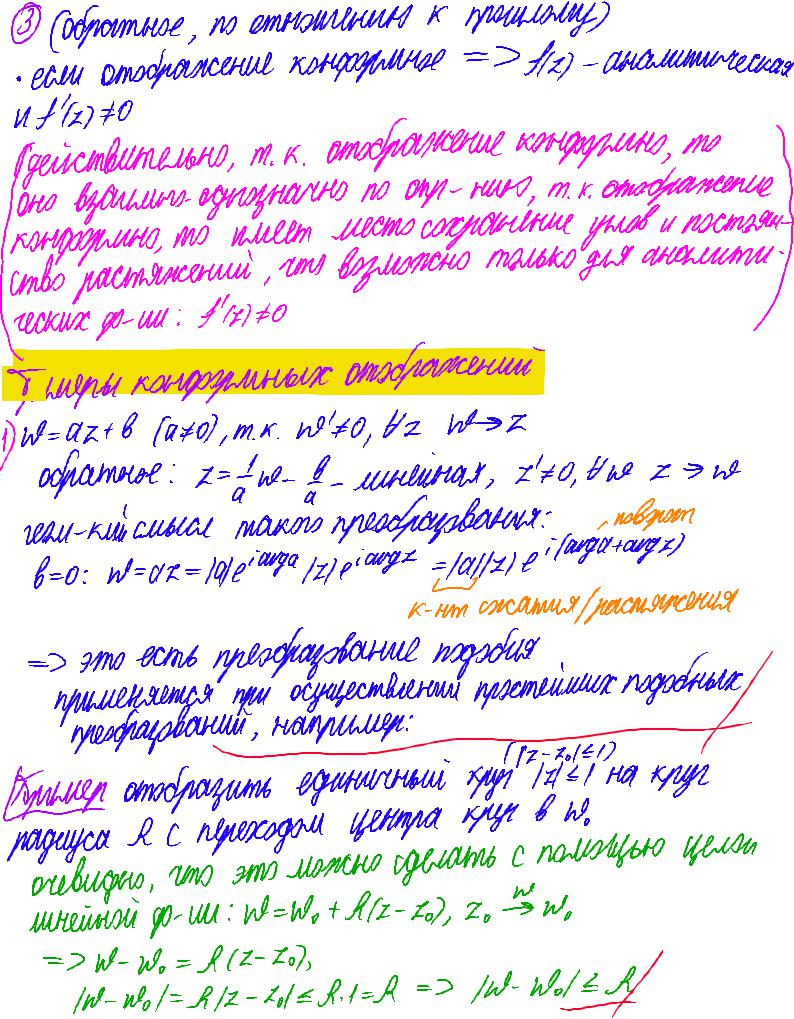 ③ (обратное, по отношению к прошлому)
· если отображение конформное => f(z) – аналитическая
и f'(z)≠0
действительно, т.к. отображение конформно, то
оно взаимно-однозначно по опр-нию, т.к. отображение
конформно, то имеет место сохранение углов и постоян-
ство растяжений, что возможно только для аналити-
ческих ф-ии: f'(z)≠0
Примеры конформных отображений
1) w=az+b (a≠0), т.к. w'≠0, ∀z w→z
обратное: z=1/a w – b/a – линейная, z'≠0, ∀w z→w
геом-кий смысл такого преобразования:
поворот
b=0: w=az=|a|e^{i arg a} |z|e^{i arg z} =|a||z| e^{i(arg a+arg z)}
к-нт сжатия/растяжения
=> это есть преобразование подобия
применяется при осуществлении простейших подобных
преобразований, например:
(|z-z₀|≤1)
Пример отобразить единичный круг |z|≤1 на круг
радиуса R с переходом центра круг в w₀
очевидно, что это можно сделать с помощью целой
линейной ф-ии: w=w₀+R(z-z₀), z₀ →^w w₀
=> w-w₀=R(z-z₀),
|w-w₀|=R|z-z₀|≤R·1=R => |w-w₀|≤R